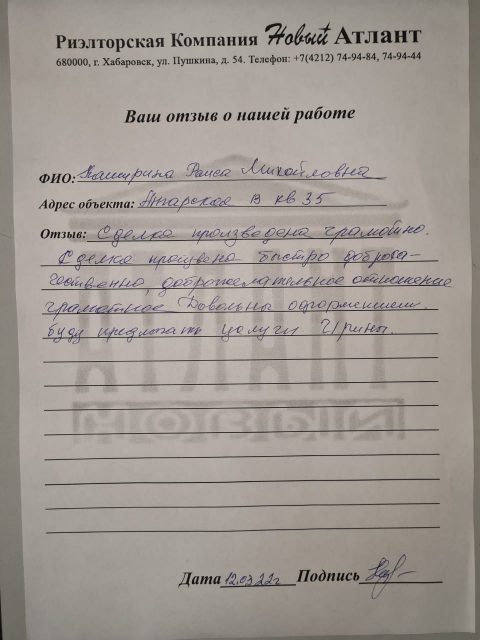 Риэлторская Компания Новый Атлант
680000, г. Хабаровск, ул. Пушкина, д. 54. Телефон: +7(4212) 74-94-84, 74-94-44
Ваш отзыв о нашей работе
ФИО: Каширина Раиса Михайловна
Адрес объекта: Ангарская 8 кв 35
Отзыв: Сделка произведена грамотно.
Сделка проведена быстро доброка-
чественно, доброжелательное отношение
грамотное Довольны оформлением.
буду предлагать услуги Ирины.
АТЛАНТ
НОВЫЙ
Дата 12.03.22г Подпись